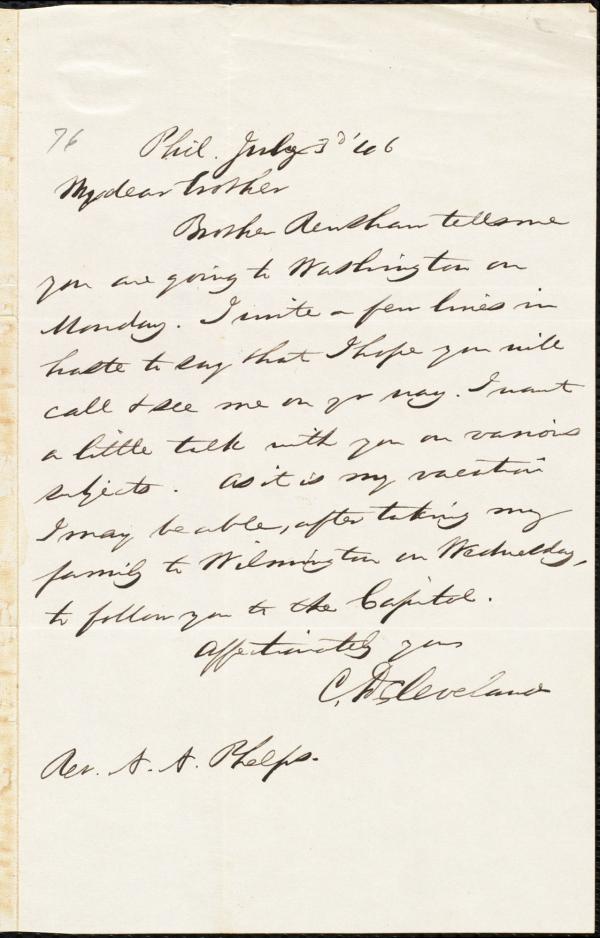 76
Phil. July 3d '46
My dear brother
Brother Renshaw tells me
you are going to Washington on
Monday. I write a few lines in
haste to say that I hope you will
call & see me on yr way. I want
a little talk with you on various
subjects. As it is my vacation
I may be able, after taking my
family to Wilmington on Wednesday,
to follow you to the Capitol.
Affectionately yours
C. D. Cleveland
Rev. A. A. Phelps.